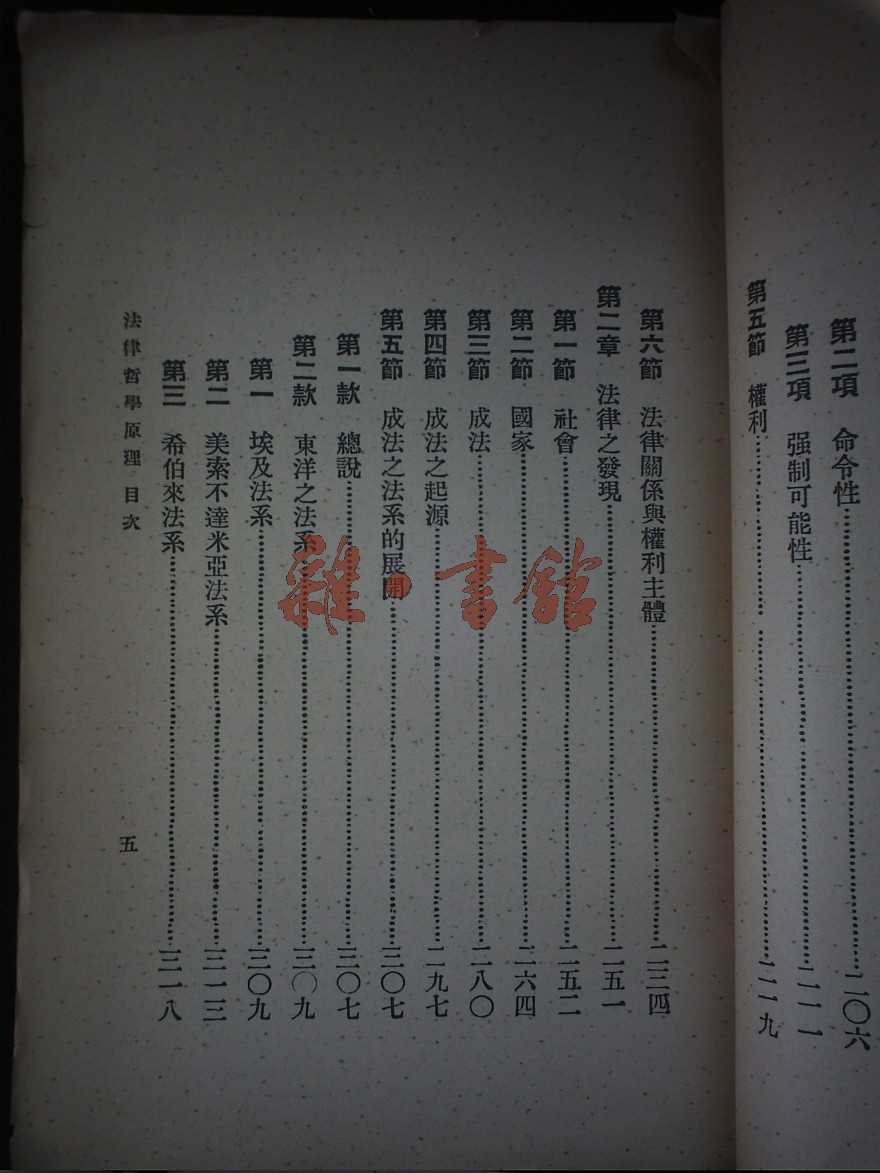 第二項　命令性……二〇六
第三項　强制可能性……二一一
第五節　權利……二一九
第六節　法律關係與權利主體……二三四
第二章　法律之發現……二五一
第一節　社會……二五二
第二節　國家……二六四
第三節　成法……二八〇
第四節　成法之起源……二九七
第五節　成法之法系的展開……三〇七
第一款　總說……三〇七
第二款　東洋之法系……三〇九
第一　埃及法系……三〇九
第二　美索不達米亞法系……三一三
第三　希伯來法系……三一八
法律哲學原理　目次
五
雜·書館